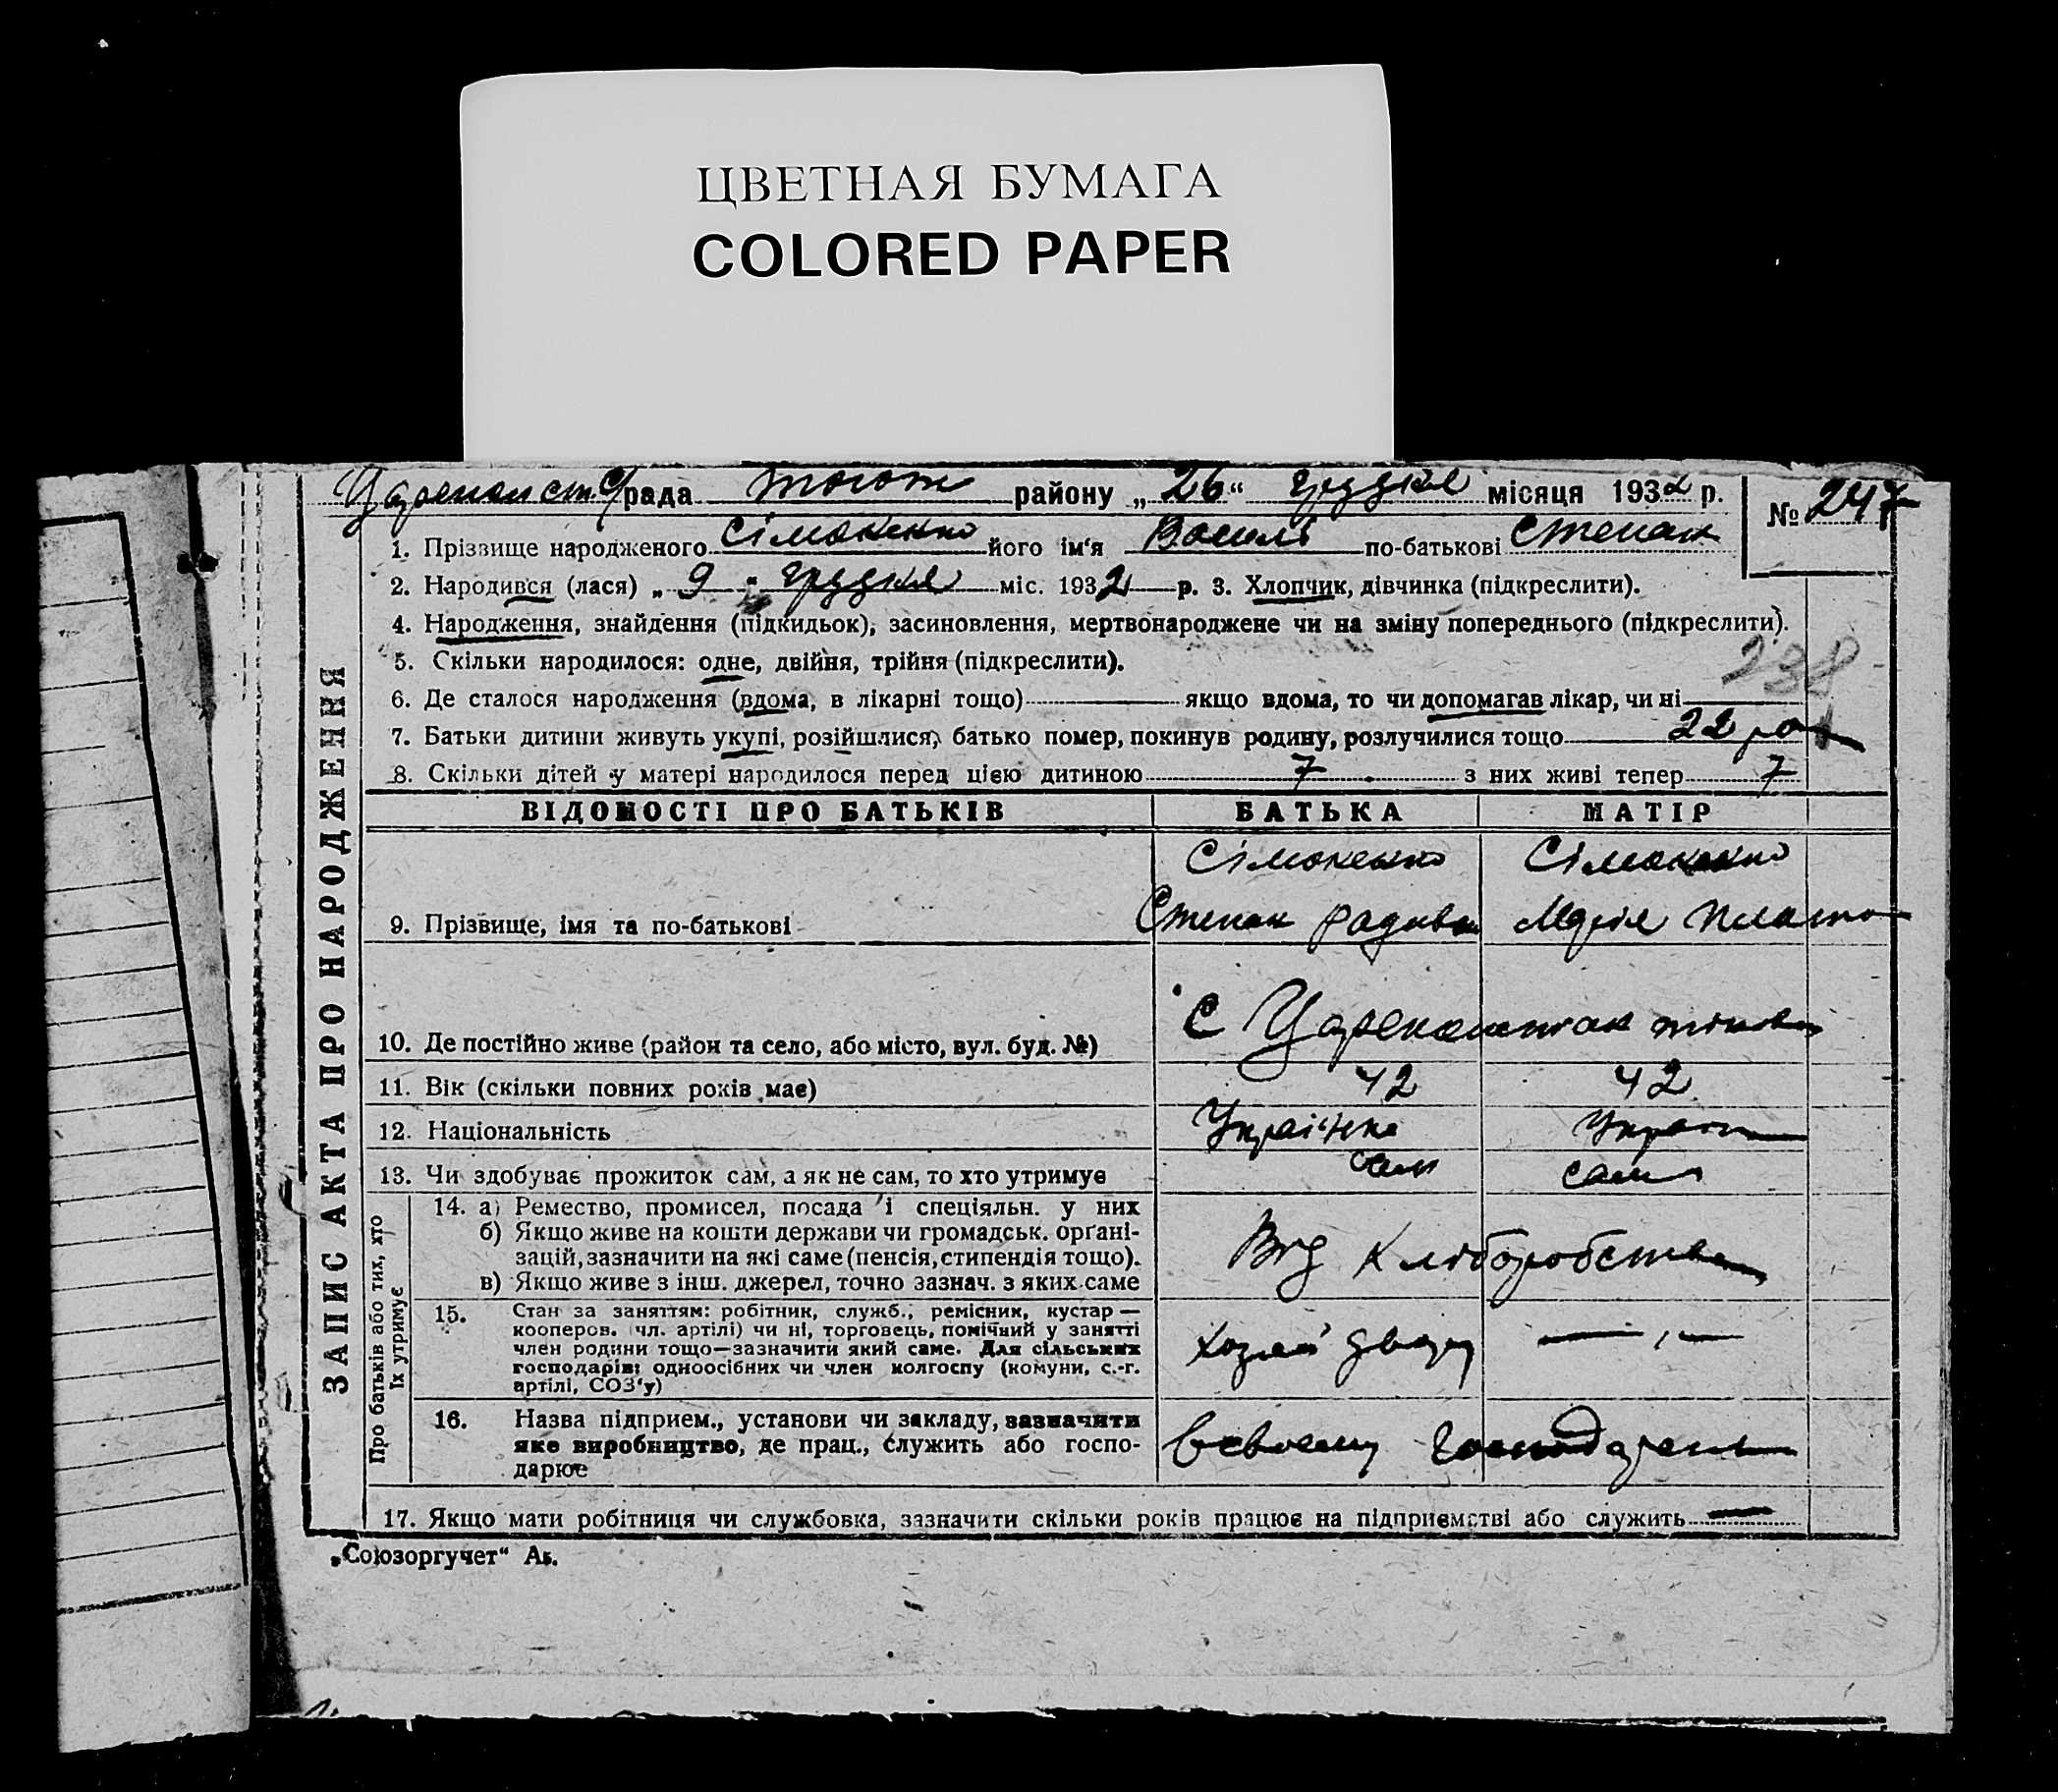 ЦВЕТНАЯ БУМАГА
COLORED PAPER
с/рада района „26“ грудня місяця 1932 р. № 247
1. Прізвище народженого Сімоненко його ім'я Василь по-батькові Степан
2. Народився (лася) „9“ грудня міс. 1932 р. 3. Хлопчик, дівчинка (підкреслити).
4. Народження, знайдення (підкидьок), засиновлення, мертвонароджене чи на зміну попереднього (підкреслити).
5. Скільки народилося: одне, двійня, трійня (підкреслити).
238
6. Де сталося народження (вдома, в лікарні тощо) якщо вдома, то чи допомагав лікар, чи ні
7. Батьки дитини живуть укупі, розійшлися, батько помер, покинув родину, розлучилися тощо 22 ро
8. Скільки дітей у матері народилося перед цією дитиною 7 з них живі тепер 7
ЗАПИС АКТА ПРО НАРОДЖЕННЯ
ВІДОМОСТІ ПРО БАТЬКІВ БАТЬКА МАТІР
Сімоненко Сімоненко
9. Прізвище, імя та по-батькові Степан Мария
10. Де постійно живе (район та село, або місто, вул. буд. №) С
11. Вік (скільки повних років має) 42 42
12. Національність Українка
13. Чи здобуває прожиток сам, а як не сам, то хто утримує сам сама
Про батьків або тих, хто їх утримує
14. а) Ремество, промисел, посада і спеціяльн. у них
б) Якщо живе на кошти держави чи громадськ. орґані-
зацій, зазначити на які саме (пенсія, стипендія тощо).
в) Якщо живе з інш. джерел, точно зазнач. з яких саме
Від хліборобства
15. Стан за заняттям: робітник, служб., ремісник, кустар —
кооперов. (чл. артілі) чи ні, торговець, помічний у занятті
член родини тощо—зазначити який саме. Для сільських
господарів: одноосібних чи член колгоспу (комуни, с.-г.
артілі, СОЗ'у)
хозяй двору — „ —
16. Назва підприєм., установи чи закладу, зазначити
яке виробництво, де прац., служить або госпо-
дарює
всвоему
17. Якщо мати робітниця чи службовка, зазначити скільки років працює на підприємстві або служить —
„Союзоргучет“ Ак.